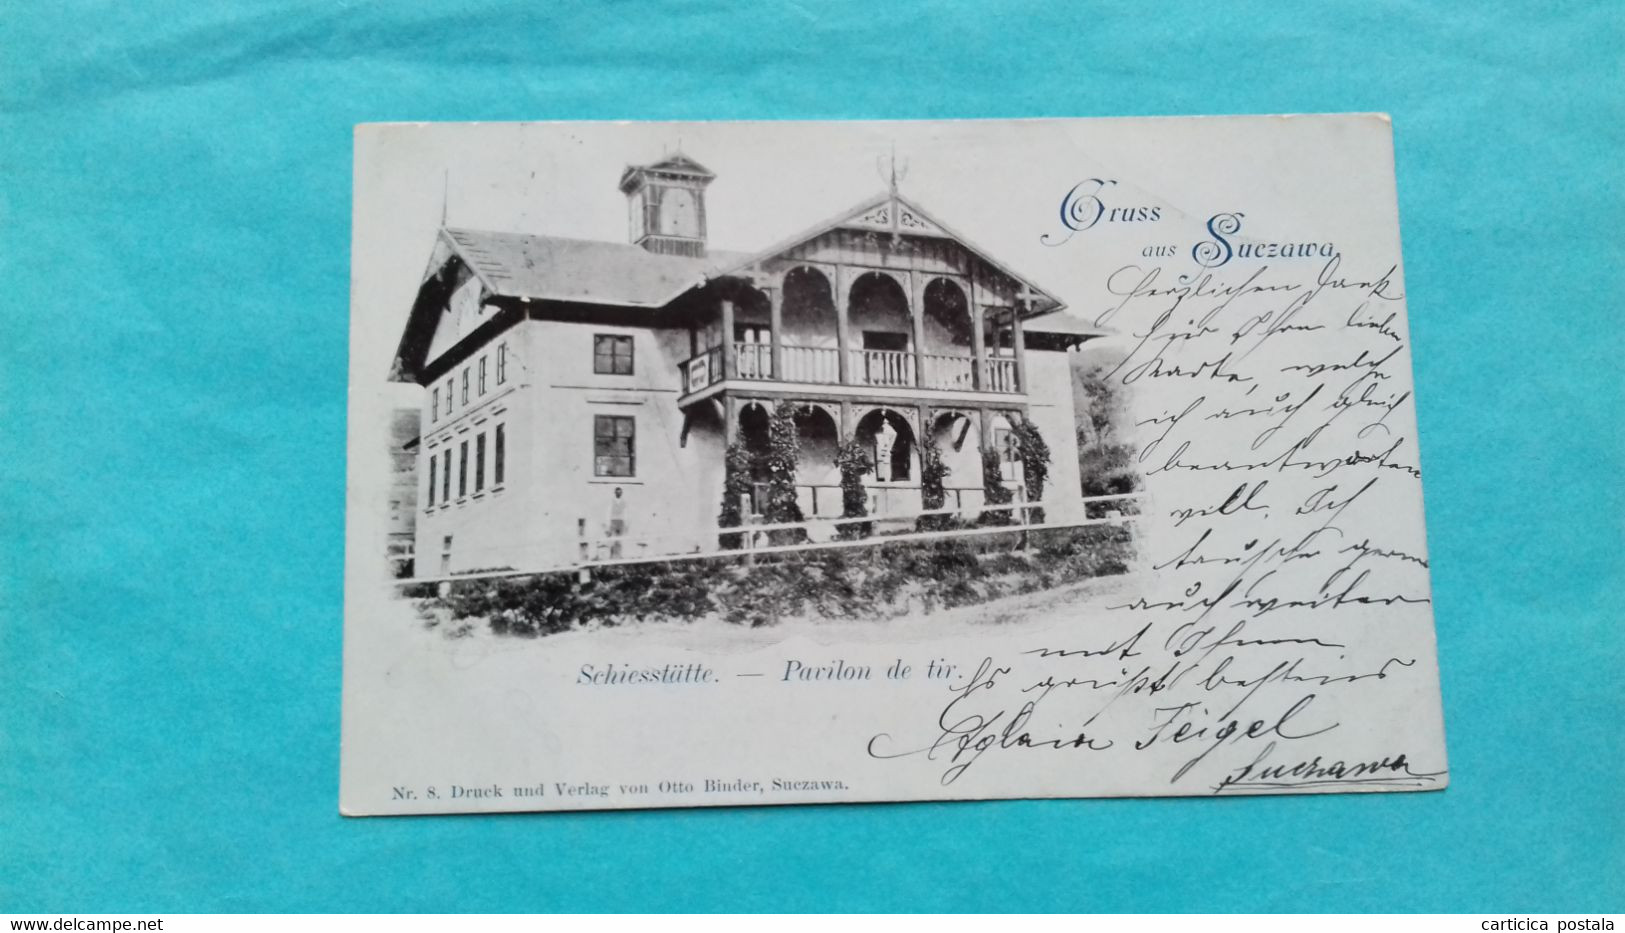 Gruss
aus Suczawa
Herzlichen Dank
für Ihre lieben
Karte, welche
ich auch gleich
beantworten
will. Ich
tausche gerne
auch weiter
mit Ihnen
Es grüßt bestens
Aglaia Feigel
Suczawa
Schiesstätte. — Pavilon de tir.
Nr. 8. Druck und Verlag von Otto Binder, Suczawa.
delcampe.net
carticica postala